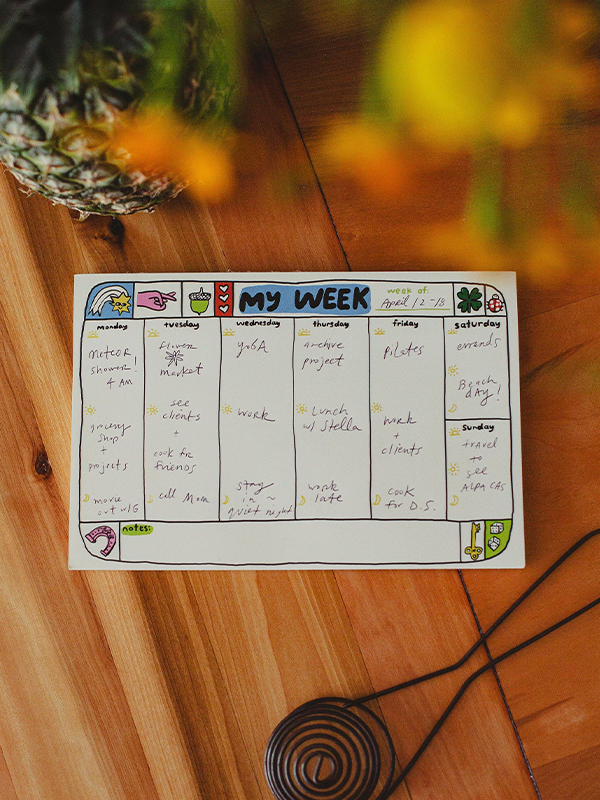 MY WEEK
week of:
April 12-18
monday
meteor
shower!
4 AM
grocery
shop
+
projects
movie
out w/G
tuesday
flower
market
see
clients
+
cook for
friends
call Mom
wednesday
yoga
work
stay
in ~
quiet night
thursday
archive
project
Lunch
w/ Stella
work
late
friday
Pilates
work
+
clients
cook
for D.S.
saturday
errands
Beach
dAy!
sunday
travel
to
see
ALPACAS
notes: